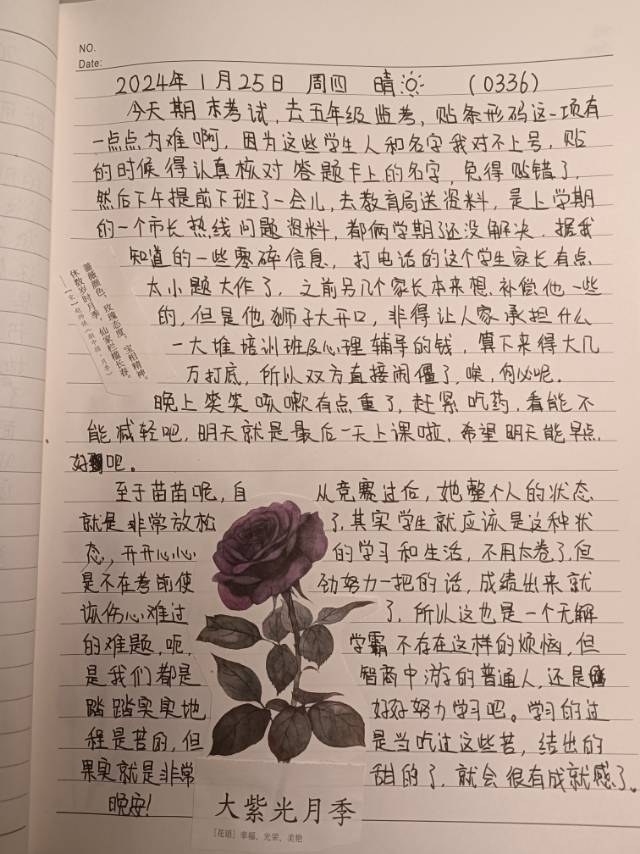 NO.
Date:
2024年1月25日 周四 晴 (0336)
今天期末考试,去五年级监考,贴条形码这一项有
一点点为难啊,因为这些学生人和名字我对不上号,贴
的时候得认真核对答题卡上的名字,免得贴错了,
然后下午提前下班了一会儿,去教育局送资料,是上学期
的一个市长热线问题资料,都俩学期了还没解决,据我
知道的一些零碎信息,打电话的这个学生家长有点
太小题大作了,之前另几个家长本来想补偿他一些
的,但是他狮子大开口,非得让人家承担什么
一大堆培训班及心理辅导的钱,算下来得大几
万打底,所以双方直接闹僵了,唉,何必呢。
蔷薇颜色,玫瑰态度,宝相精神。
休数岁时月季,仙家栏槛长春。
晚上笑笑咳嗽有点重了,赶紧吃药,看能不
能减轻吧,明天就是最后一天上课啦,希望明天能早点
好吧。
至于苗苗呢,自从竞赛过后,她整个人的状态
就是非常放松了,其实学生就应该是这种状
态,开开心心的学习和生活,不用太卷了,但
是不在考前使劲努力一把的话,成绩出来就
该伤心难过了,所以这也是一个无解
的难题,呃,学霸不存在这样的烦恼,但
是我们都是智商中游的普通人,还是
踏踏实实地好好努力学习吧。学习的过
程是苦的,但是当吃过这些苦,结出的
果实就是非常甜的了,就会很有成就感了。
晚安!
大紫光月季
[花语] 幸福、光荣、美艳